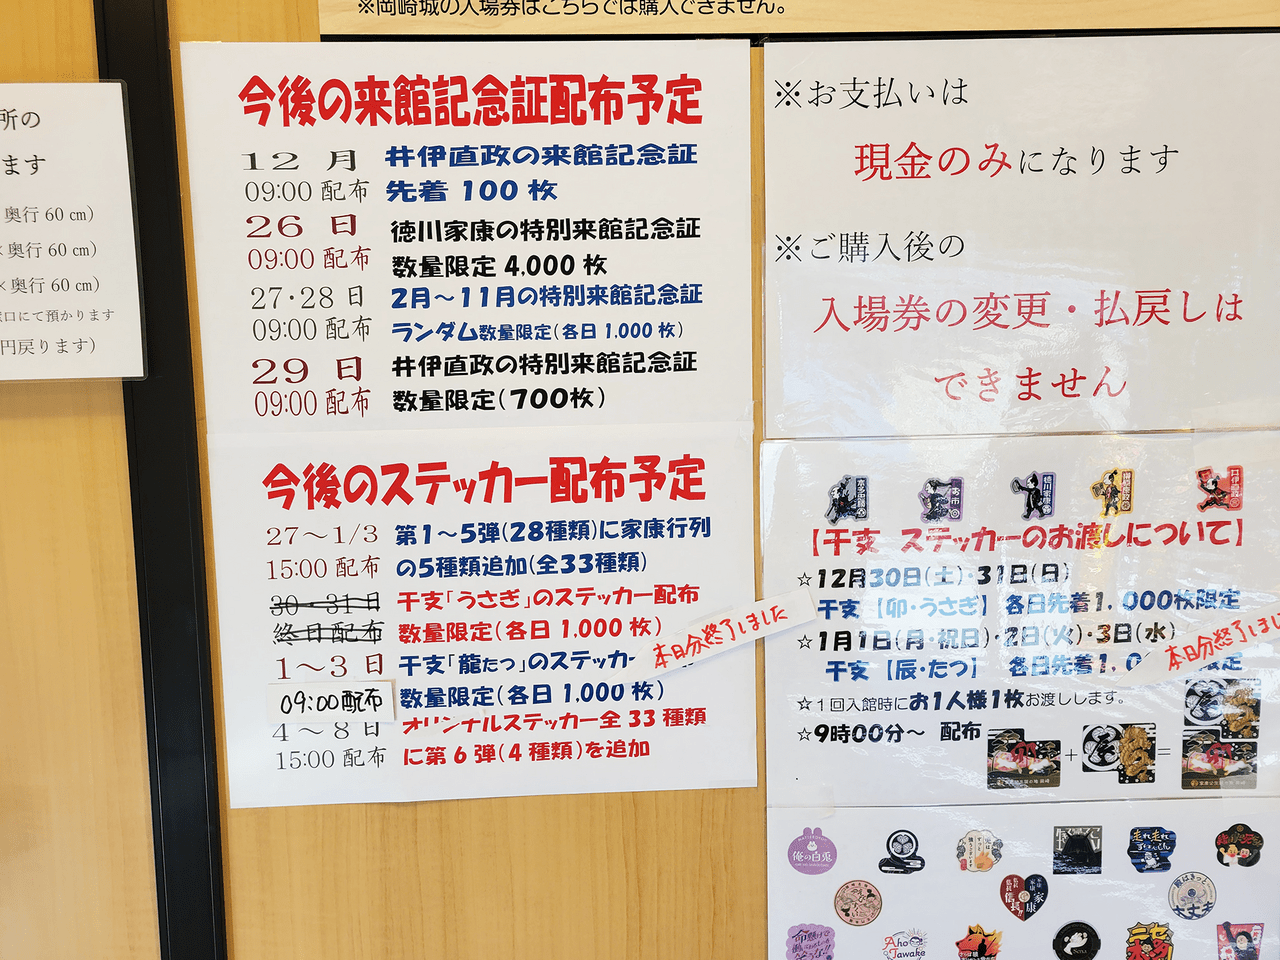 ※岡崎城の入場券はこちらでは購入できません。
所の
ます
奥行 60 ㎝）
×奥行 60 ㎝）
×奥行 60 ㎝）
口にて預かります
円戻ります）
今後の来館記念証配布予定
12 月 井伊直政の来館記念証
09:00 配布 先着 100 枚
26 日 徳川家康の特別来館記念証
09:00 配布 数量限定 4,000 枚
27・28 日 2月～11月の特別来館記念証
09:00 配布 ランダム数量限定（各日 1,000 枚）
29 日 井伊直政の特別来館記念証
09:00 配布 数量限定（700枚）
今後のステッカー配布予定
27～1/3 第1～5弾（28種類）に家康行列
15:00 配布 の5種類追加（全33種類）
30・31日 干支「うさぎ」のステッカー配布
終日配布 数量限定（各日 1,000 枚）
本日分終了しました
1～3 日 干支「龍たつ」のステッカー
09:00配布 数量限定（各日 1,000 枚）
4～8日 オリジナルステッカー全 33 種類
15:00 配布 に第 6 弾（4 種類）を追加
※お支払いは
現金のみになります
※ご購入後の
入場券の変更・払戻しは
できません
本多忠勝
於市
徳川家康
榊原康政
井伊直政
【干支 ステッカーのお渡しについて】
☆12月30日（土）・31日（日）
干支【卯・うさぎ】 各日先着1，000枚限定
☆1月1日（月・祝日）・2日（火）・3日（水）
本日分終了しました
干支【辰・たつ】 各日先着1，0 限定
☆1回入館時にお1人様1枚お渡しします。
☆9時00分～ 配布
+ =
俺の白兎
走れ走れ
家康
信長
大丈夫
Aho
Tawake
ニセ
本多